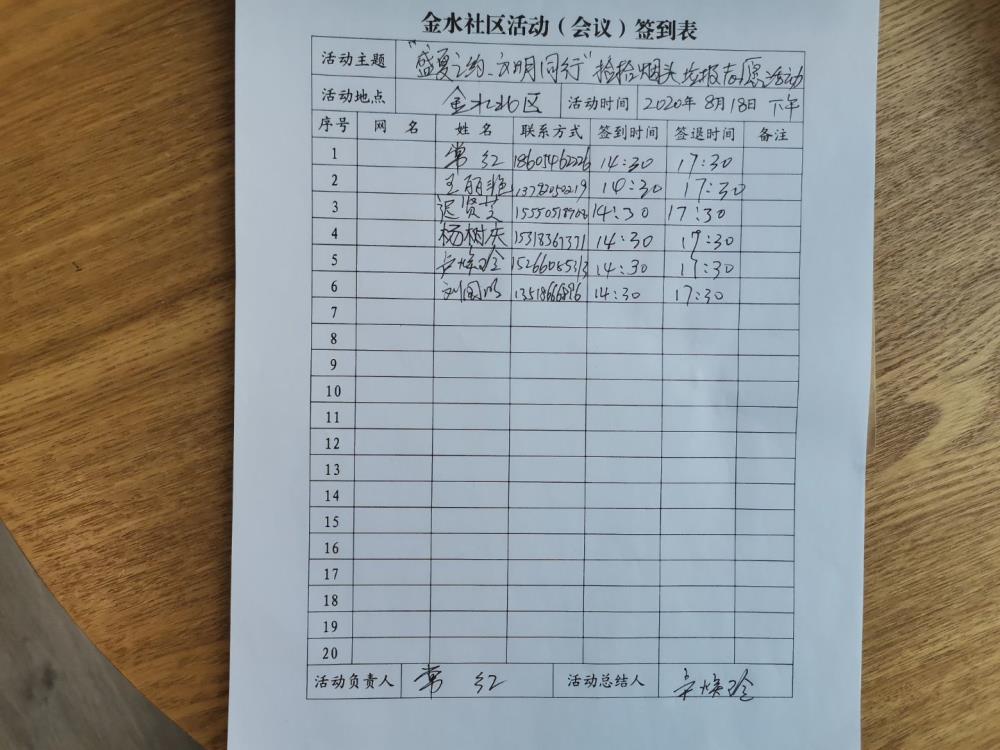 金水社区活动（会议）签到表
活动主题 "盛夏之约、文明同行"捡拾烟头 志愿活动
活动地点 金水北区 活动时间 2020年8月18日 下午
序号 网 名 姓 名 联系方式 签到时间 签退时间 备注
1 常红 18605462226 14:30 17:30
2 王丽 14:30 17:30
3 迟贤芝 14:30 17:30
4 杨树庆 15318367371 14:30 17:30
5 15266085313 14:30 17:30
6 刘国 14:30 17:30
7
8
9
10
11
12
13
14
15
16
17
18
19
20
活动负责人 常 红 活动总结人